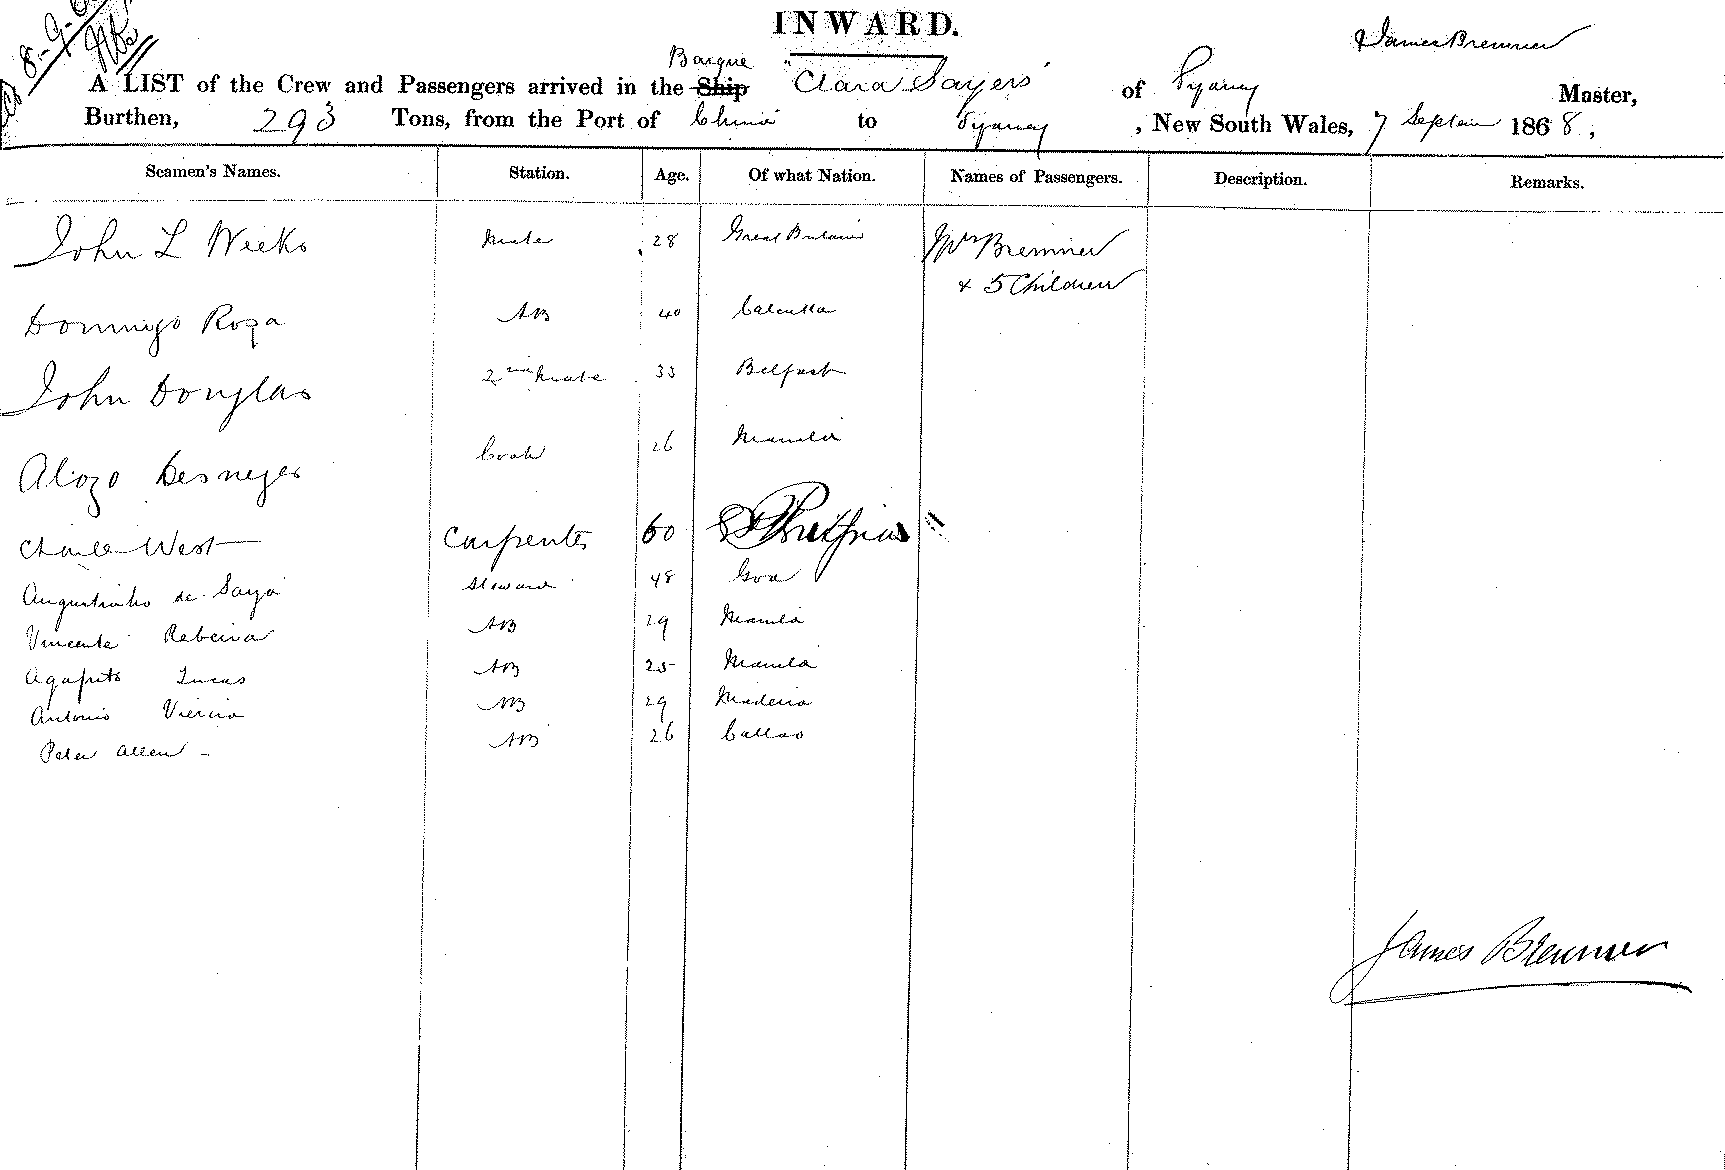 INWARD.
8-9-6
James Bremner
Barque
A LIST of the Crew and Passengers arrived in the Ship "Clara Sayers" of Sydney Master,
Burthen, 293 Tons, from the Port of China to Sydney, New South Wales, 7 Septem 1868,
Seamen's Names. Station. Age. Of what Nation. Names of Passengers. Description. Remarks.
John L Weeks Mate 28 Great Britain Mrs Bremner
& 5 Children
Domingo Roza AB 40 Calcutta
John Douglas 2nd Mate 33 Belfast
Alozo Cook 26 Manila
Charles West Carpenter 60 Prussia
Augustinho de Sayo Steward 48 Goa
Vincente Rebeira AB 29 Manila
Agapito Lucas AB 25 Manila
Antonio Vieria AB 29 Madeira
Peter Allen - AB 26 Callao
James Bremner